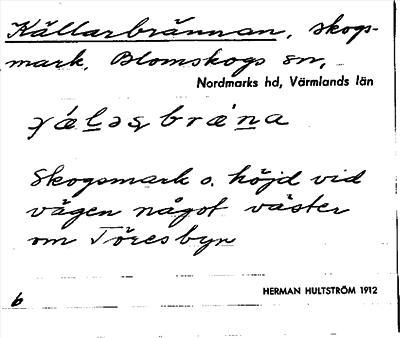 Källarbrännan, skogs-
mark, Blomskogs sn,
Nordmarks hd, Värmlands län
Skogsmark o. höjd vid
vägen något väster
om Töresbyn
b
HERMAN HULTSTRÖM 1912